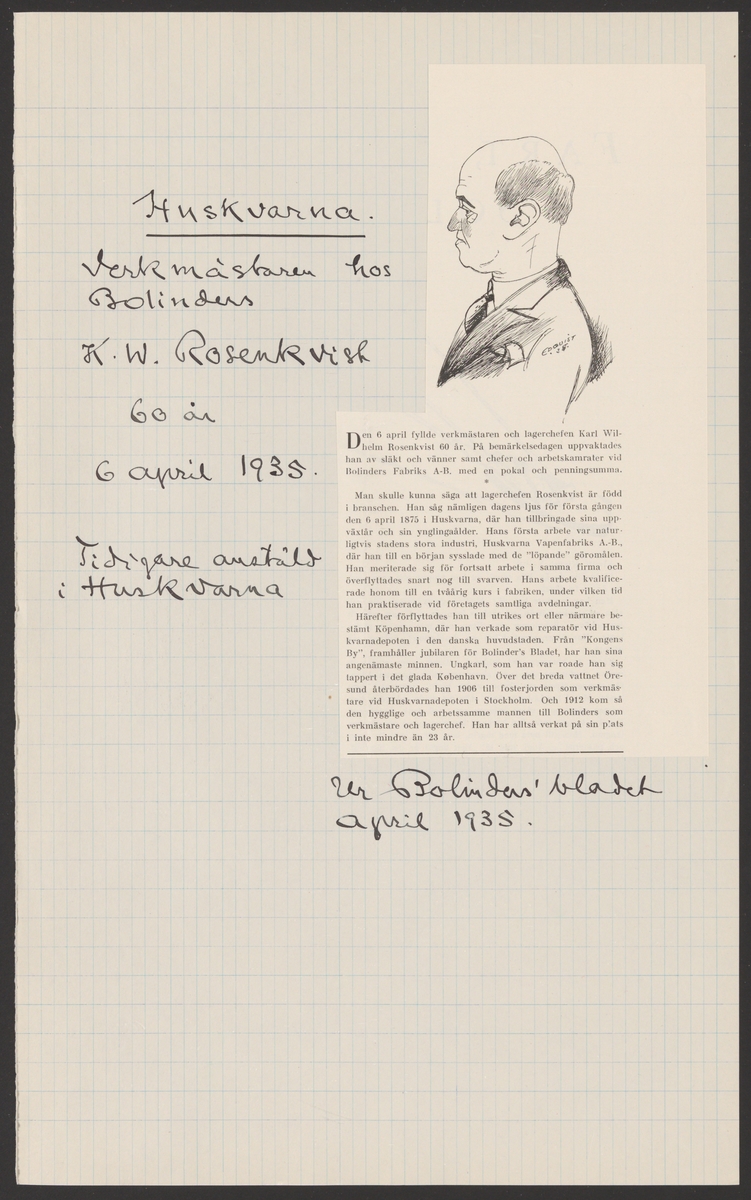 Huskvarna.
Verkmästaren hos
Bolinders
K. W. Rosenkvist
60 år
6 april 1935.
Tidigare anstäld
i Huskvarna
EDQUIST
Den 6 april fyllde verkmästaren och lagerchefen Karl Wil-
helm Rosenkvist 60 år. På bemärkelsedagen uppvaktades
han av släkt och vänner samt chefer och arbetskamrater vid
Bolinders Fabriks A-B. med en pokal och penningsumma.
*
Man skulle kunna säga att lagerchefen Rosenkvist är född
i branschen. Han såg nämligen dagens ljus för första gången
den 6 april 1875 i Huskvarna, där han tillbringade sina upp-
växtår och sin ynglingaålder. Hans första arbete var natur-
ligtvis stadens stora industri, Huskvarna Vapenfabriks A.-B.,
där han till en början sysslade med de "löpande" göromålen.
Han meriterade sig för fortsatt arbete i samma firma och
överflyttades snart nog till svarven. Hans arbete kvalifice-
rade honom till en tvåårig kurs i fabriken, under vilken tid
han praktiserade vid företagets samtliga avdelningar.
Härefter förflyttades han till utrikes ort eller närmare be-
stämt Köpenhamn, där han verkade som reparatör vid Hus-
kvarnadepoten i den danska huvudstaden. Från "Kongens
By", framhåller jubilaren för Bolinder's Bladet, har han sina
angenämaste minnen. Ungkarl, som han var roade han sig
tappert i det glada København. Över det breda vattnet Öre-
sund återbördades han 1906 till fosterjorden som verkmäs-
tare vid Huskvarnadepoten i Stockholm. Och 1912 kom så
den hygglige och arbetssamme mannen till Bolinders som
verkmästare och lagerchef. Han har alltså verkat på sin plats
i inte mindre än 23 år.
Ur Bolinders' bladet
april 1935.